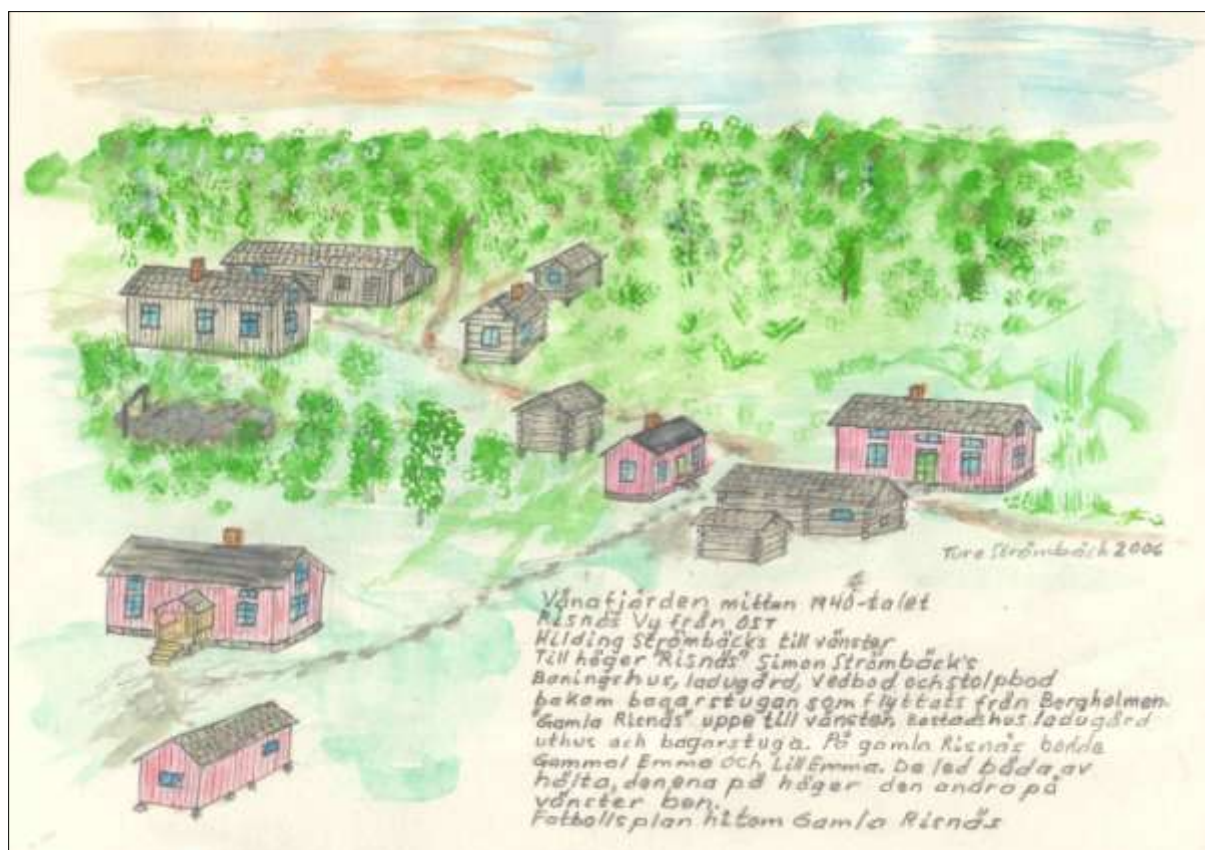 Ture Strömbäck 2006
Vånafjärden mitten 1940-talet
Risnäs Vy från ÖST
Hilding Strömbäcks till vänster
Till höger "Risnäs" Simon Strömbäck's
Boningshus, ladugård, vedbod och stolpbod
bakom bagarstugan som flyttats från Bergholmen.
"Gamla Risnäs" uppe till vänster bostadshus ladugård
uthus och bagarstuga. På gamla Risnäs bodde
Gammal Emma och Lill Emma. De led båda av
hälta, den ena på höger den andra på
vänster ben.
Fotbollsplan hitom Gamla Risnäs